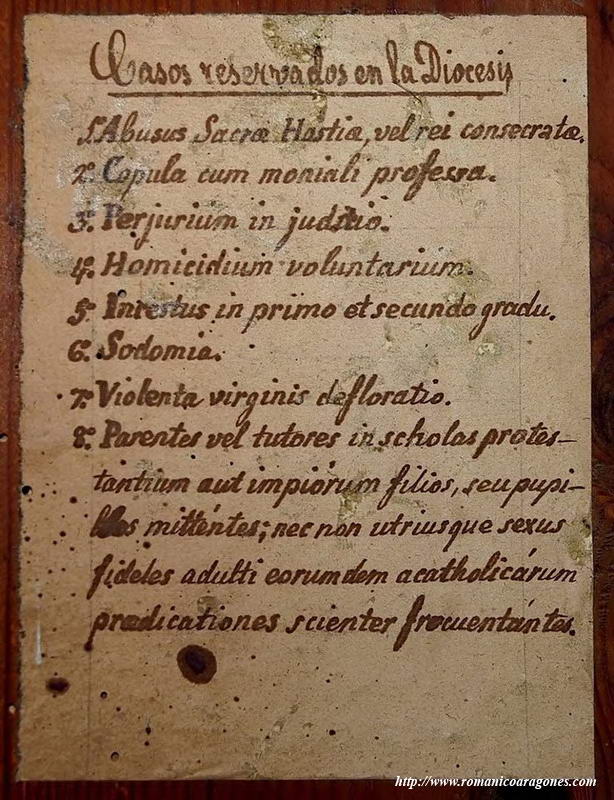 Casos reservados en la Diocesis
1º Abusus Sacræ Hostiæ, vel rei consecratæ.
2º Copula cum moniali professa.
3º Perjurium in juditio.
4º Homicidium voluntarium.
5º Incestus in primo et secundo gradu.
6º Sodomia.
7º Violenta virginis defloratio.
8º Parentes vel tutores in scholas protes-
tantium aut impiórum filios, seu pupi-
llos mitténtes; nec non utriusque sexus
fideles adulti eorumdem acatholicárum
prædicationes scienter frecuentántes.
http://www.romanicoaragones.com